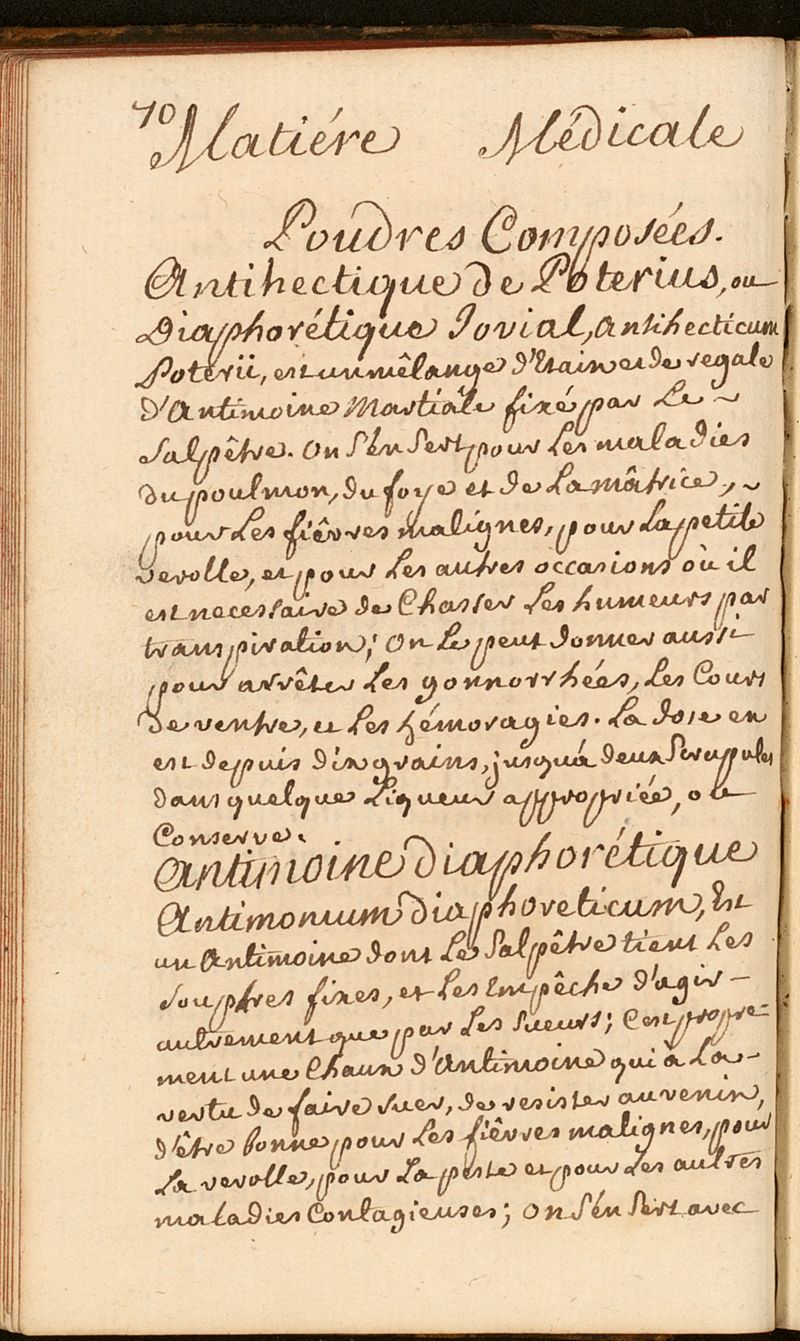 70
Matiére Médicale
Poudres Composées.
Antihectique de Poterius, ou
Diaphorétique Jovial, Antihecticum
Poterii, est un mêlange d'Etain et de regale
d'Antimoine Martiâle fixé par Le ~
Salpêtre. On S'én Sert pour Les maladies
du poulmon, du foye et de La mâtrice, ~
pour Les fiêvres malignes, pour La petite
verolle, et pour Les autres occasions où il
est necessaire de Chasser Les humeurs par
transpiration; On Le peut donner aussi
pour arrêter Les gonnorrhées, Les Cours
de ventre, et Les hémoragies. La dose en
est depuis dix grains, jusqu'á deux Scrupules
dans quelque Liqueur appropriée, ou
Conserve.
Antimoine diaphorétique
Antimonium diaphoreticum, Est
un Antimoine dont Le Salpêtre tient Les
Souphres fixes, et Les Empêche d'agir -
autrement que par Les Sueurs; C'est propre=
ment une Chaux d'Antimoine qui à La -
vertu de faire suer, de resister au venin,
d'être bonne pour Les fiêvres malignes, pour
La verolle, pour La peste et pour Les autres
maladies Contagieuses; On S'én Sert avec